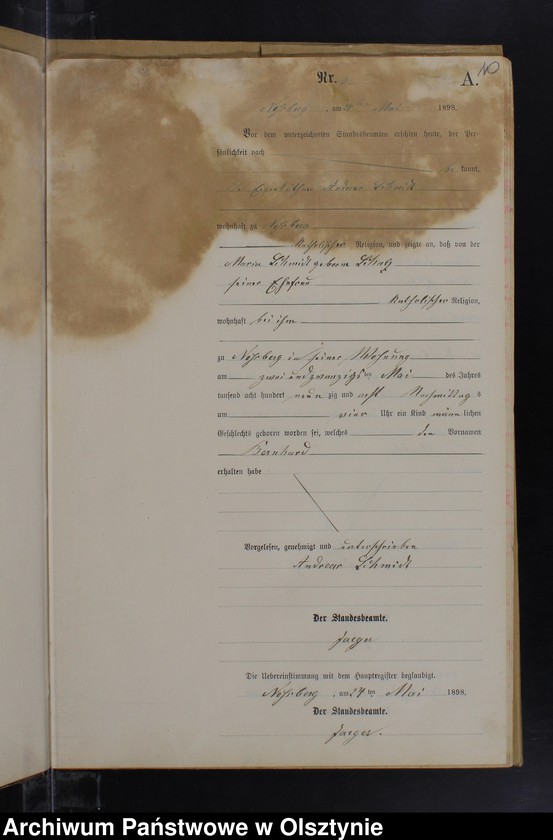 Nr.
A. 10
Noßberg, am Mai 1898.
Vor dem unterzeichneten Standesbeamten erschien heute, der Per-
sönlichkeit nach
kannt,
Andreas Schmidt
wohnhaft zu Noßberg
katholischer Religion, und zeigte an, daß von der
Maria Schmidt geborene
seiner Ehefrau
katholischer Religion,
wohnhaft bei ihm
zu Noßberg in seiner Wohnung
am zwei und zwanzigsten Mai des Jahres
tausend acht hundert neun zig und acht Nachmittags
um vier Uhr ein Kind männlichen
Geschlechts geboren worden sei, welches den Vornamen
Bernhard
erhalten habe
Vorgelesen, genehmigt und unterschrieben
Andreas Schmidt
Der Standesbeamte.
Jaeger
Die Uebereinstimmung mit dem Hauptregister beglaubigt.
Noßberg, am 24 ten Mai 1898.
Der Standesbeamte.
Jaeger.
Archiwum Państwowe w Olsztynie